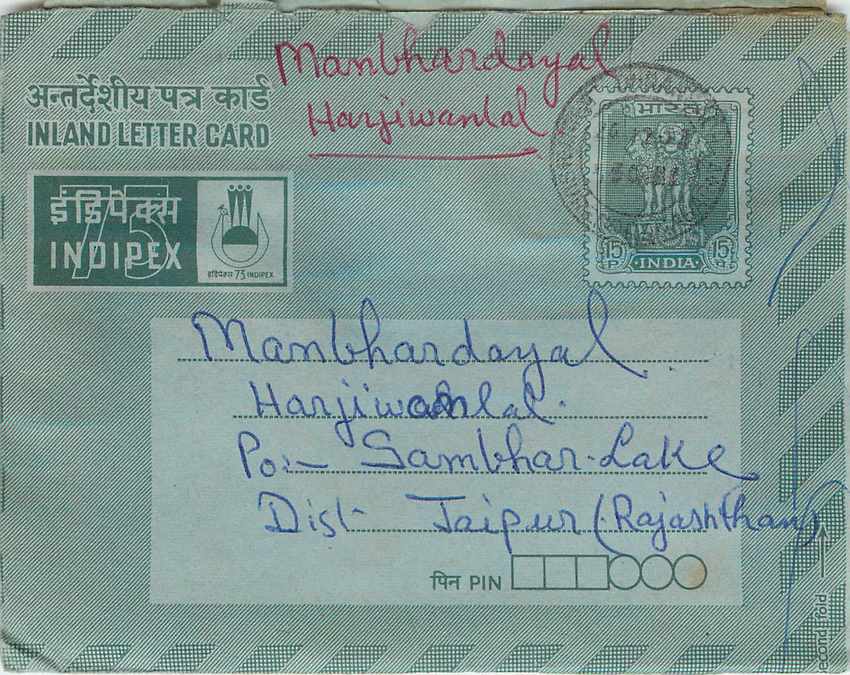 Manbhardayal
Harjiwanlal
अन्तर्देशीय पत्र कार्ड
INLAND LETTER CARD
भारत
15 P.
15 P.
INDIA
इंडिपेक्स
75
INDIPEX
इंडिपेक्स 73 INDIPEX
Manbhardayal
Harjiwanlal.
Po:- Sambhar-Lake
Dist- Jaipur (Rajashthan)
पिन PIN
second fold